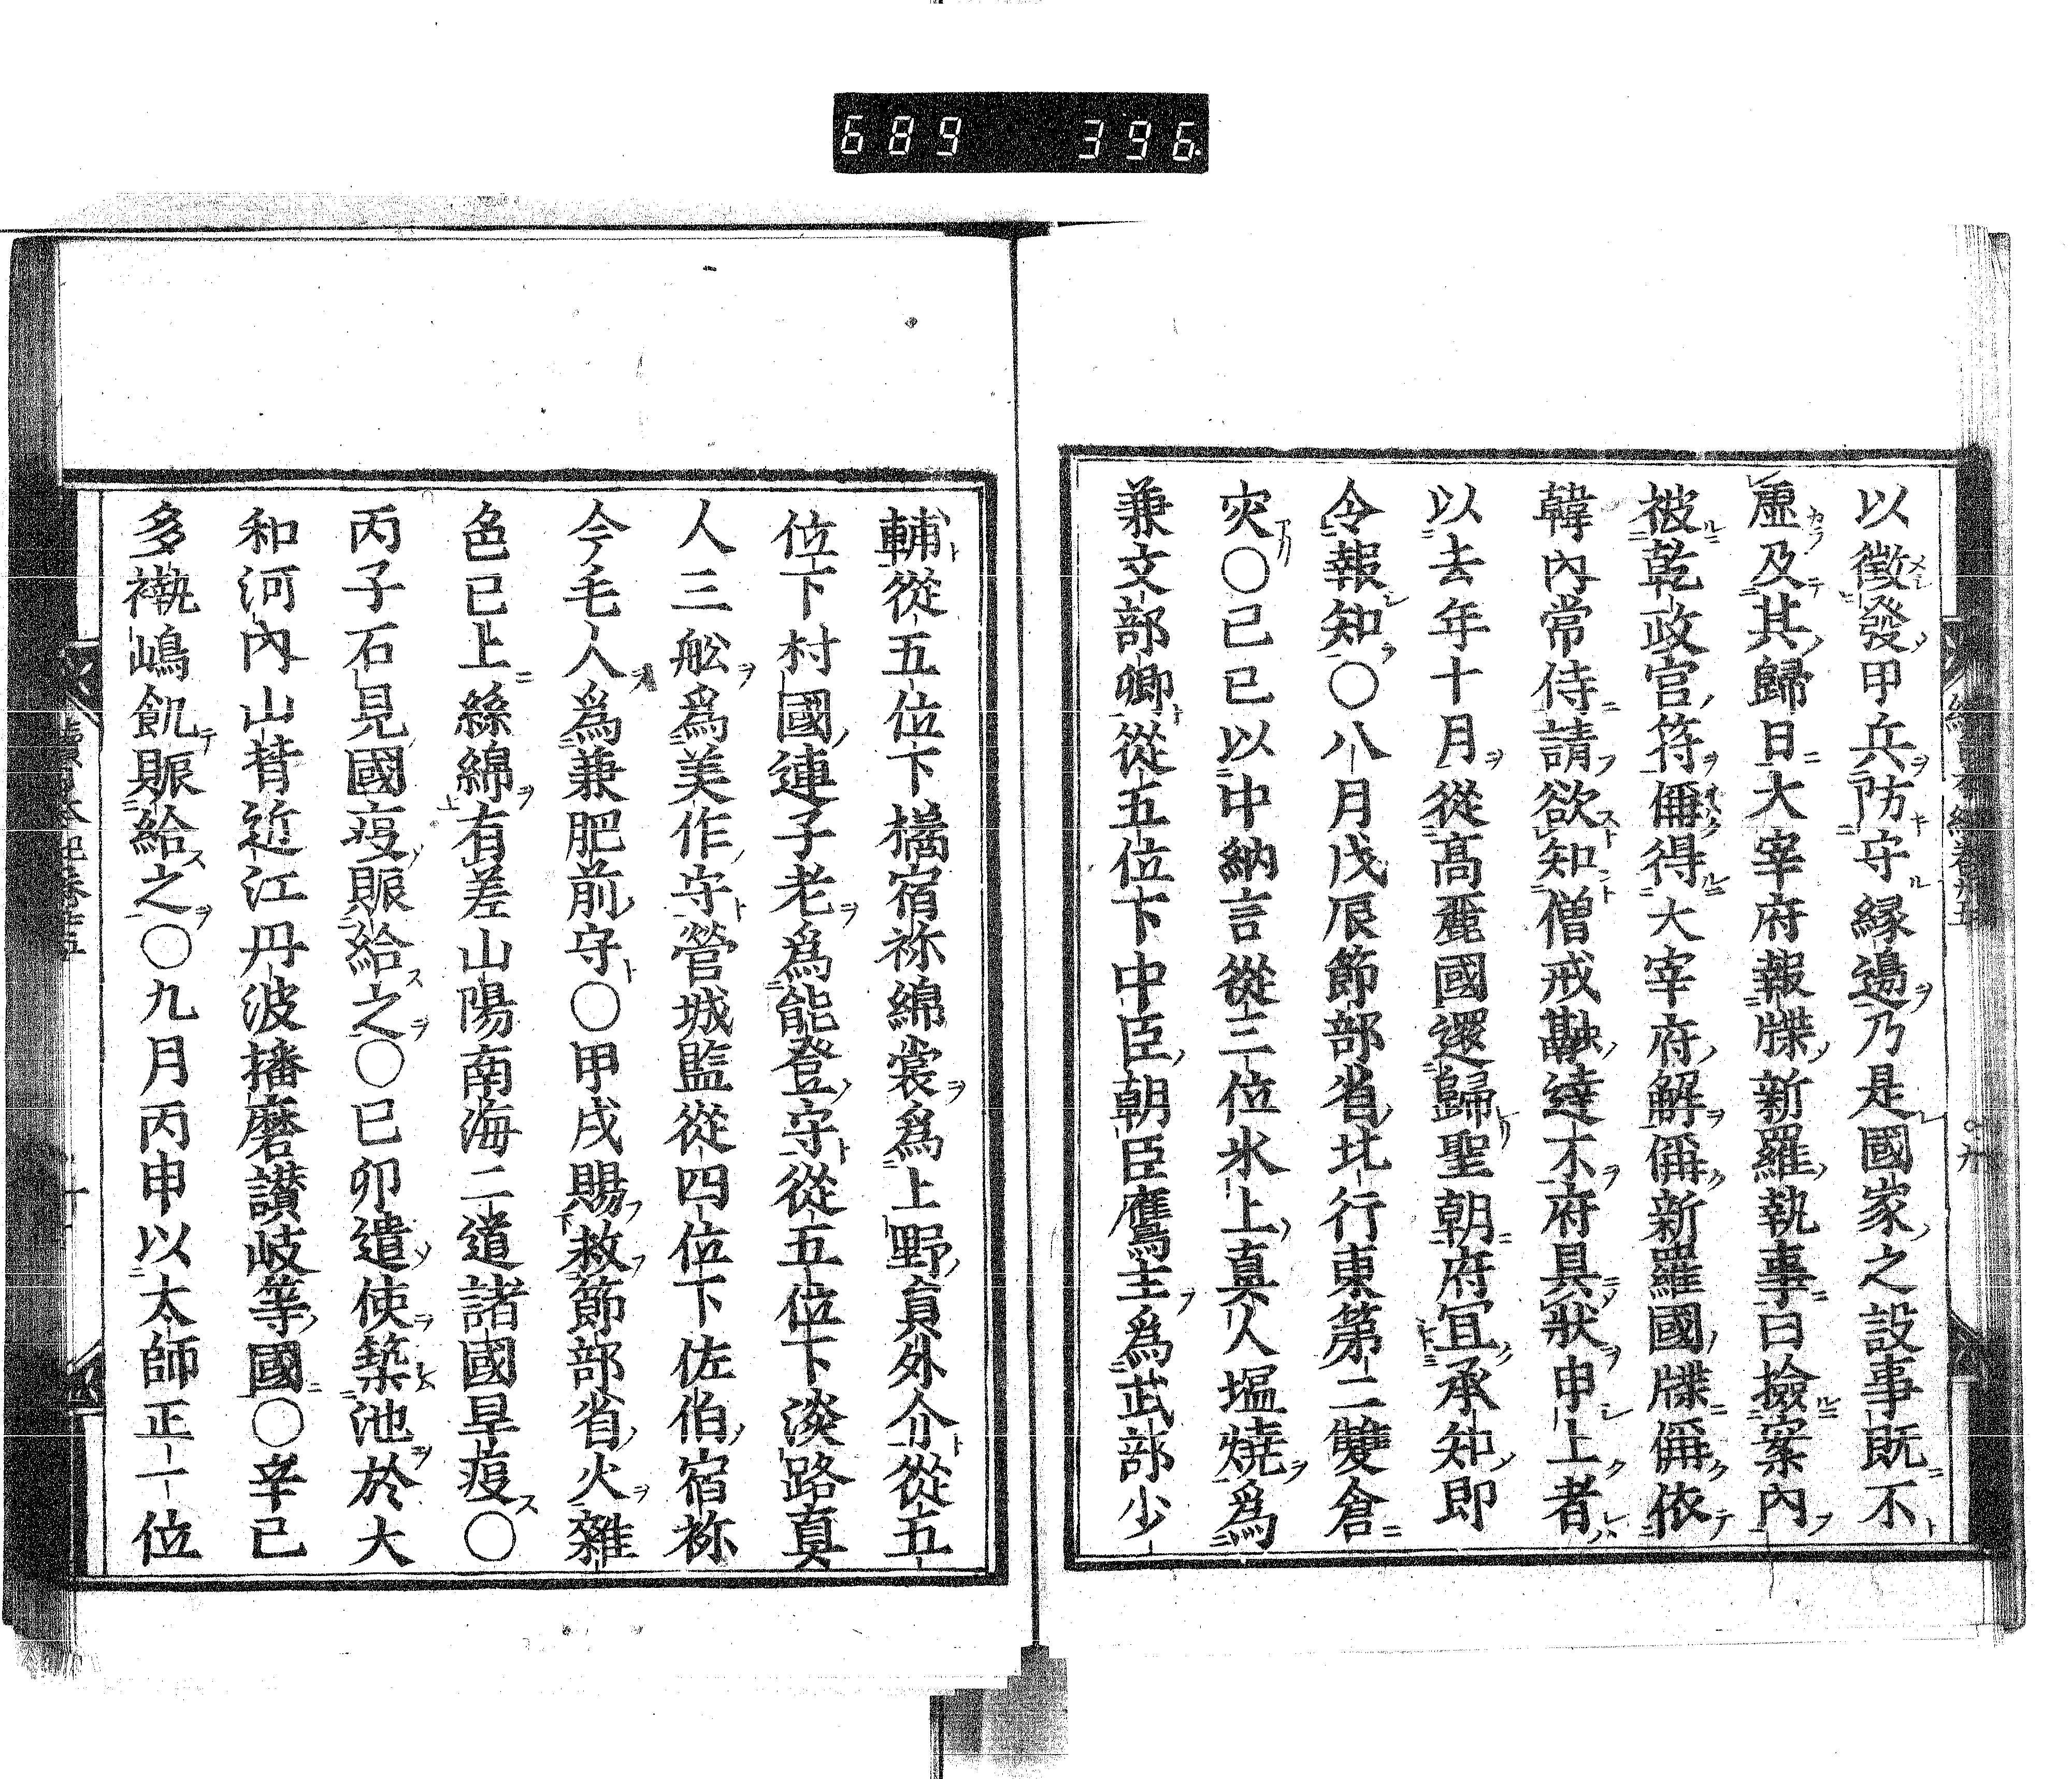 689 396
以徵發甲兵防守縁邊乃是國家之設事既不
虛及其歸日大宰府報牒新羅執事曰撿案內
被乾政官符偁得大宰府解偁新羅國牒偁依
韓內常侍請欲知僧戒融達不府具狀申上者
以去年十月從髙麗國還歸聖朝府冝承知即
令報知〇八月戊辰節部省北行東第二雙倉
灾〇己巳以中納言從三位氷上真人塩燒爲
兼文部卿從五位下中臣朝臣鷹主爲武部少
輔從五位下橘宿祢綿裳爲上野員外介從五
位下村國連子老爲能登守從五位下淡路真
人三舩爲美作守營城監從四位下佐伯宿祢
今毛人爲兼肥前守〇甲戌賜救節部省火雜
色已上絲綿有差山陽南海二道諸國旱疫〇
丙子石見國疫賑給之〇己卯遣使築池於大
和河內山背近江丹波播磨讃岐等國〇辛巳
多褹嶋飢賑給之〇九月丙申以太師正一位